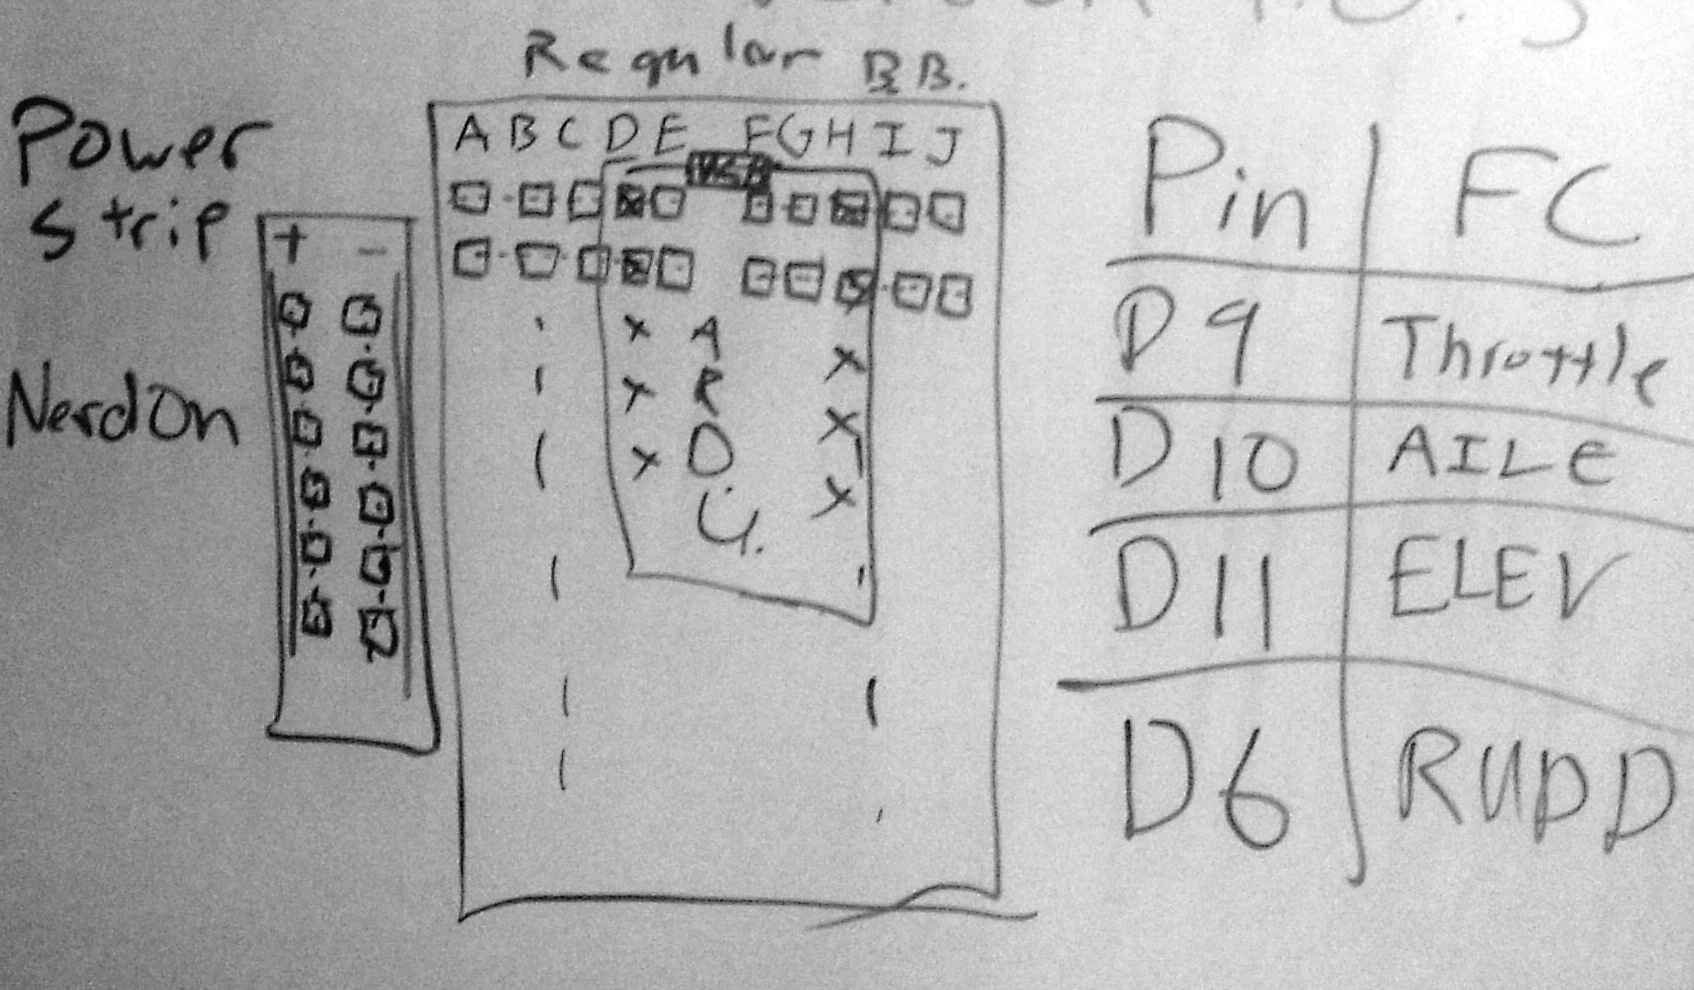 Regular BB.
Power
strip
+ -
NerdOn
A B C D E F G H I J
USB
A
R
D.
U.
Pin FC
D9 Throttle
D10 AILE
D11 ELEV
D6 RUDD